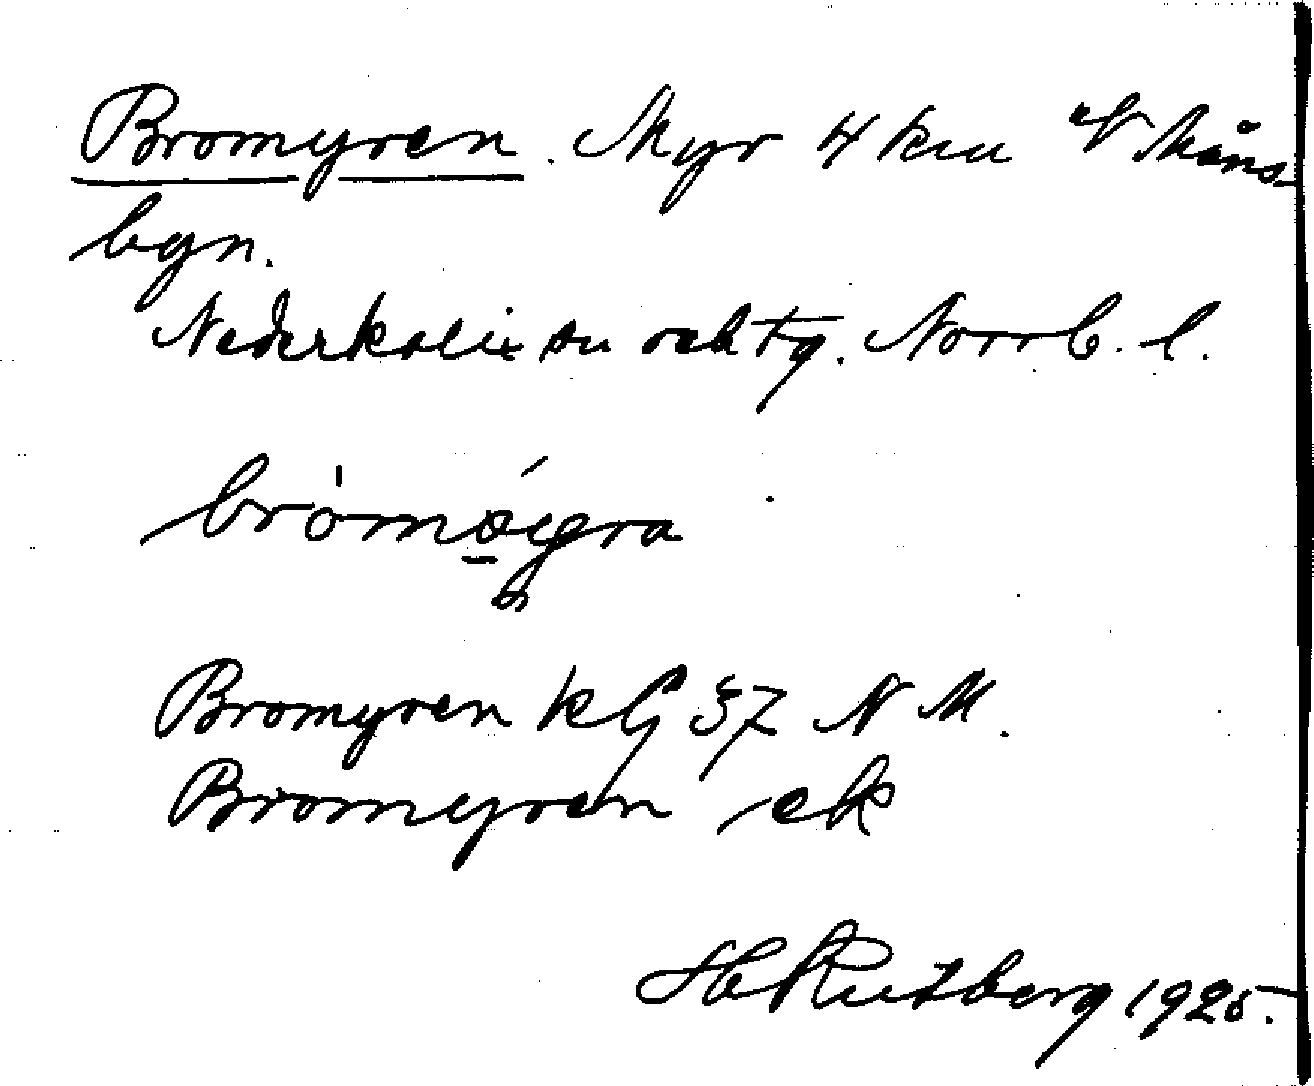 Bromyren. Myr 4 km N Måns-
byn.
Nederkalix sn och tg. Norrb. l.
Bromyren kG 37 N M.
Bromyren ek
H Rutberg 1925.